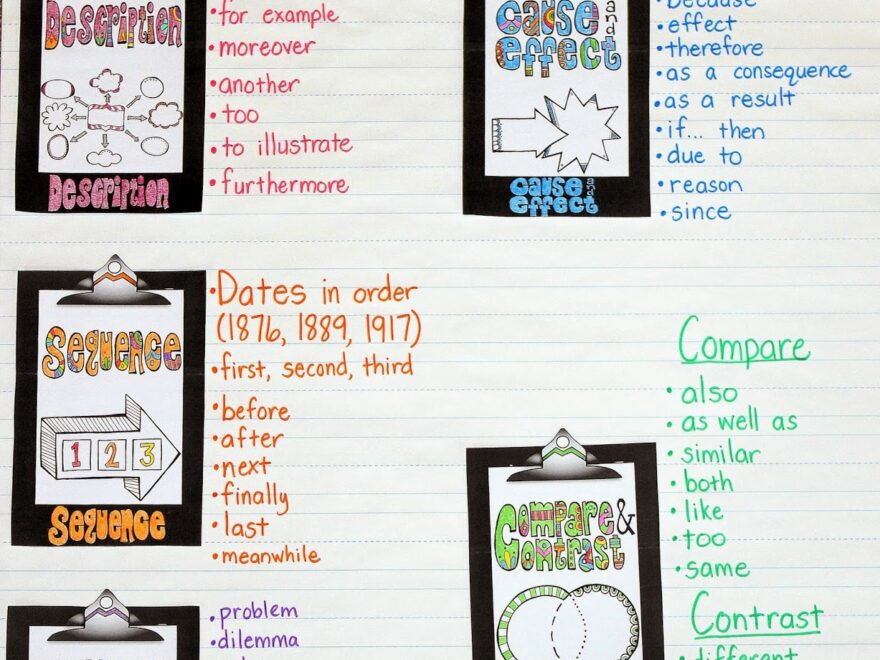 Description
• for example
• moreover
• another
• too
• to illustrate
• furthermore
Description
cause and
effect
cause and
effect
• because
• effect
• therefore
• as a consequence
• as a result
• if... then
• due to
• reason
• since
Sequence
1 2 3
Sequence
• Dates in order
(1876, 1889, 1917)
• first, second, third
• before
• after
• next
• finally
• last
• meanwhile
Compare &
Contrast
Compare
• also
• as well as
• similar
• both
• like
• too
• same
Contrast
• different
• problem
• dilemma